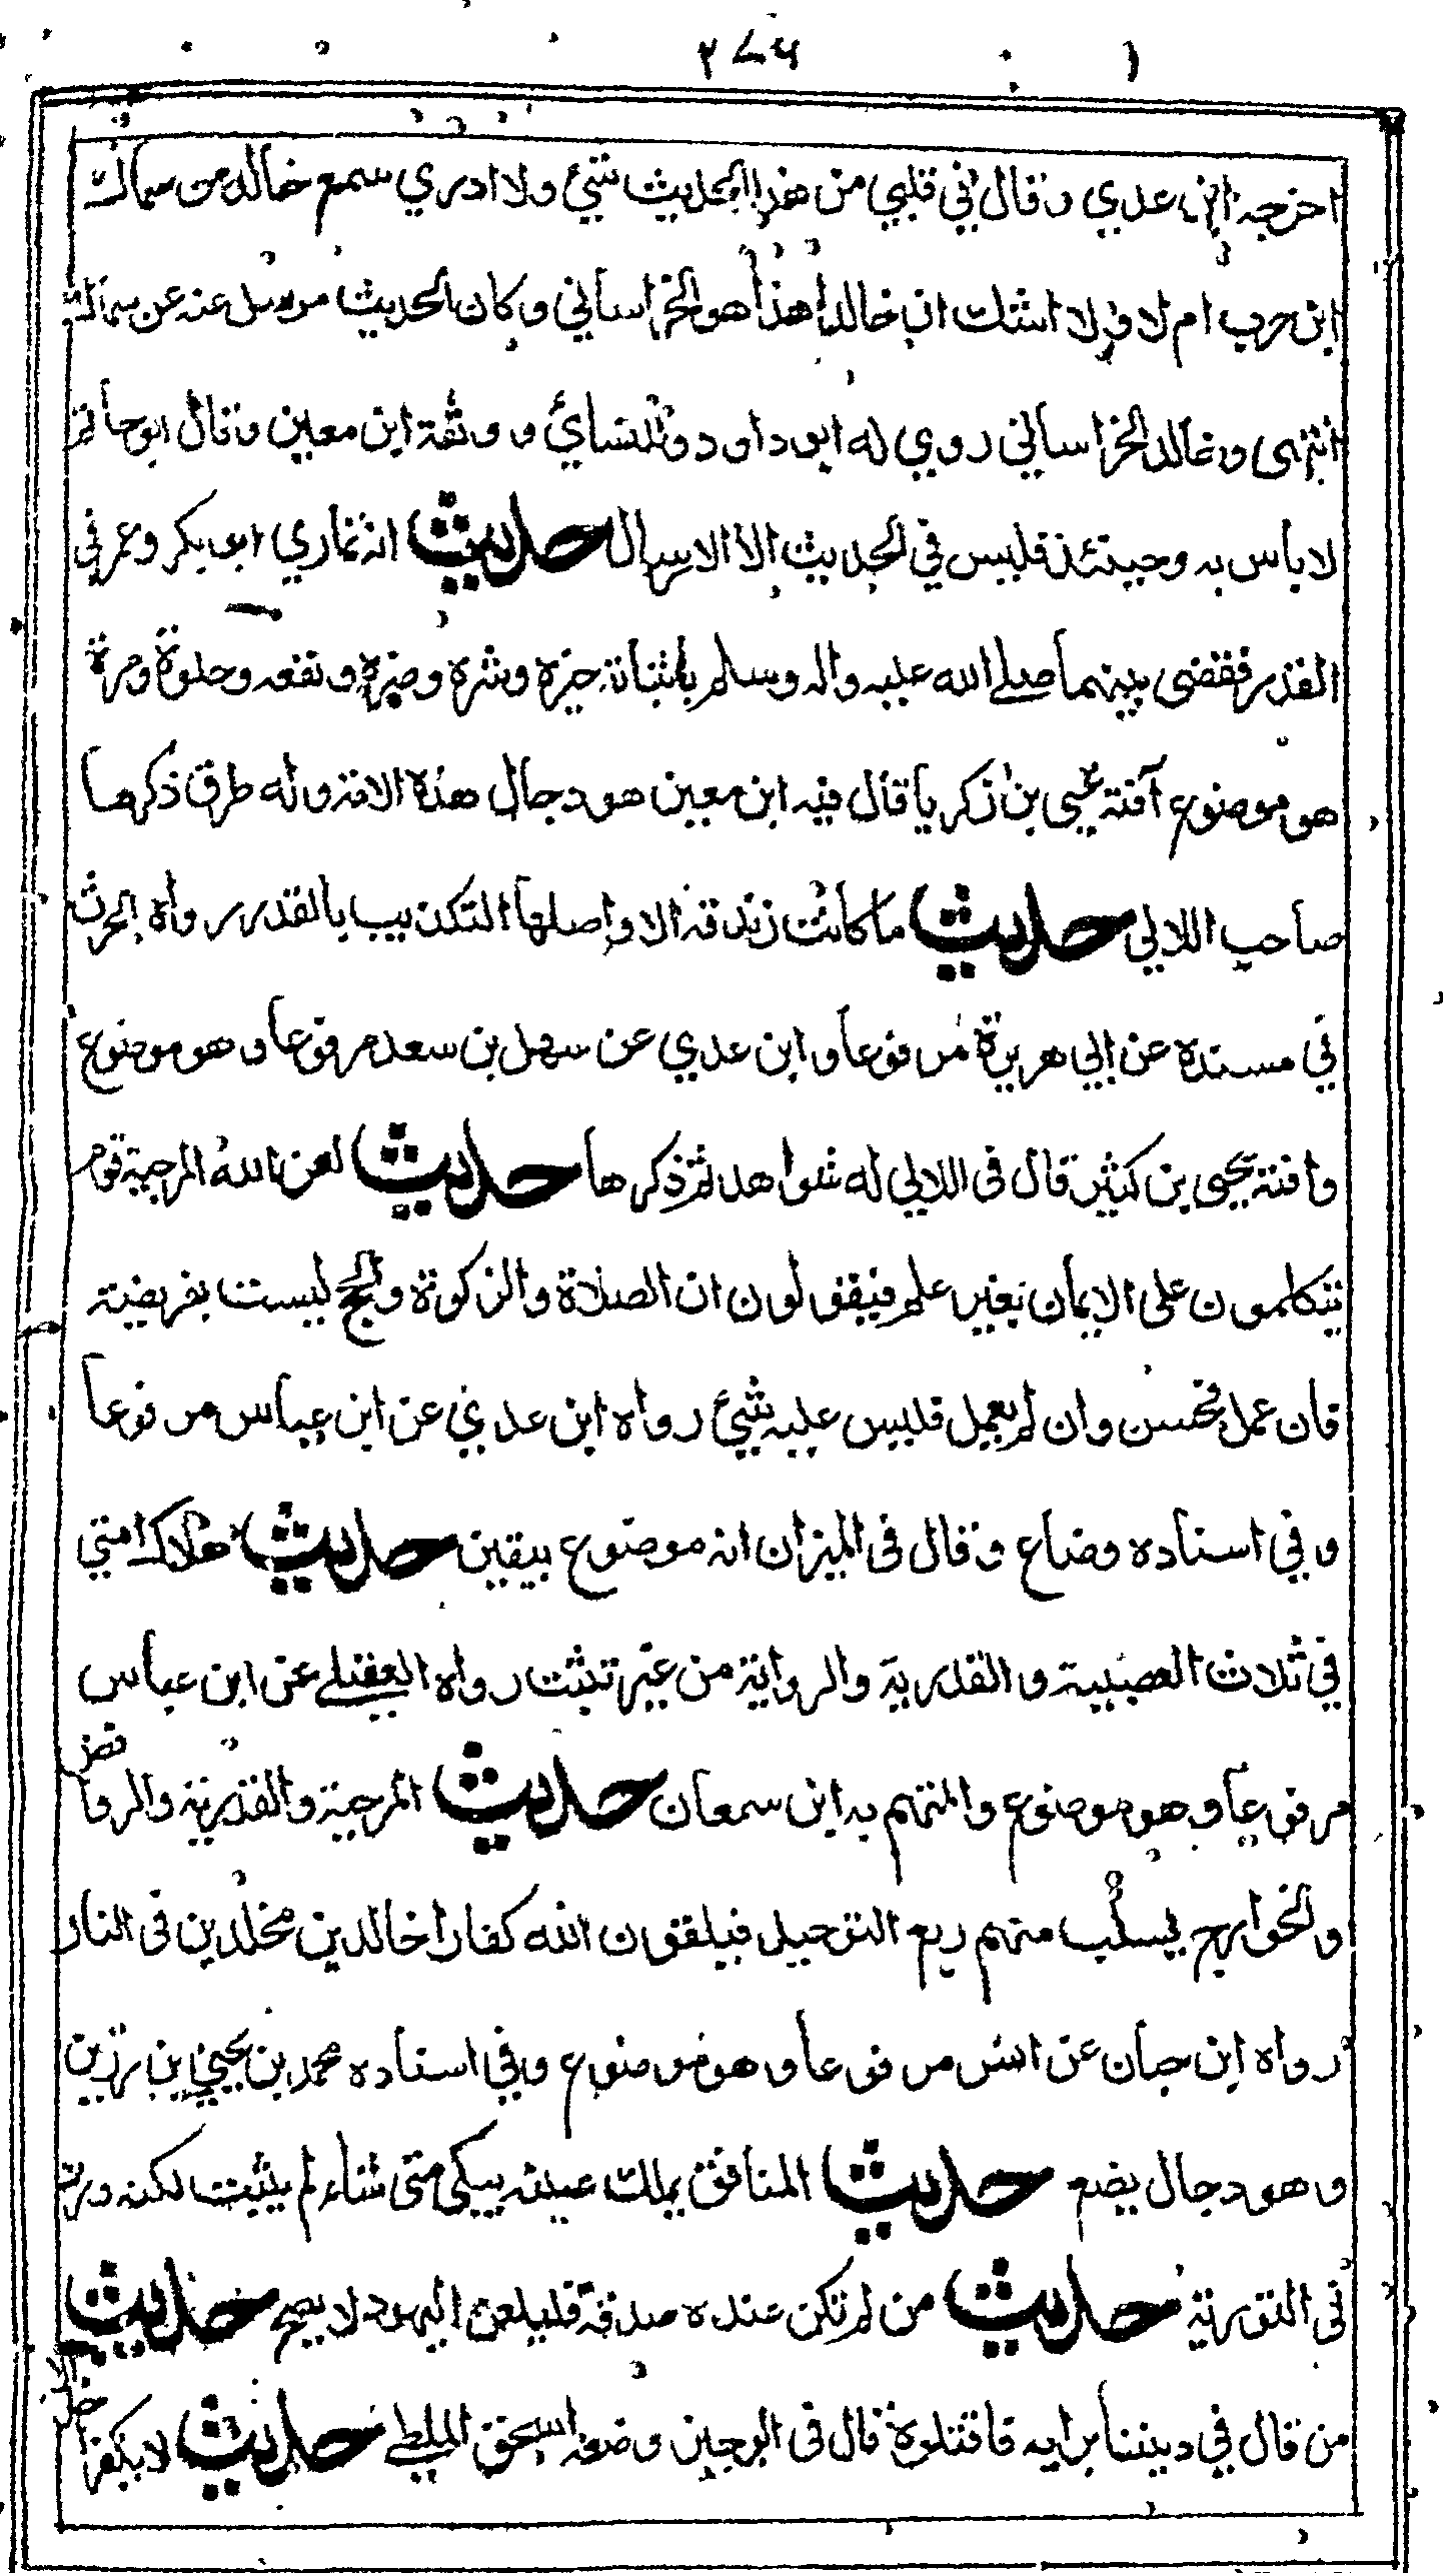 ٢٧٦
اخرجه ابن عدي وقال في قلبي من هذا الحديث شيئ ولا ادري سمع خالد من سماك
ابن حرب ام لا ولا اشك ان خالدا هذا هو الخراساني وكان الحديث مرسل عنه عن سماك
انتهى وخالد الخراساني روي له ابو داود والنسائي ووثقة ابن معين وقال ابو حاتم
لا باس به وحينئذ فليس في الحديث الا الارسال حديث انه تماري ابو بكر وعمر في
القدر فقضى بينهما صلے الله عليه واله وسلم باثباته خيره وشره وضره ونفعه وحلوة ومرة
هو موضوع آفتة يحيى بن زكريا قال فيه ابن معين هو دجال هذه الامة وله طرق ذكرها
صاحب اللالي حديث ما كانت زندقة الا واصلها التكذيب بالقدر رواه الحرث
في مسنده عن ابي هريرة مرفوعا وابن عدي عن سهل بن سعد مرفوعا وهو موضوع
وافتة يحيى بن كثير قال في اللالي له شواهد ثم ذكرها حديث لعن الله المرجية قوم
يتكلمون على الايمان بغير علم فيقولون ان الصلاة والزكوة والحج ليست بفريضة
فان عمل فحسن وان لم يعمل فليس عليه شيئ رواه ابن عدي عن ابن عباس مرفوعا
وفي اسناده وضاع وقال في الميزان انه موضوع بيقين حديث هلاك امتي
في ثلاث العصبية والقدرية والرواية من غير تثبت رواه العقيلے عن ابن عباس
مرفوعا وهو موضوع والمتهم به ابن سمعان حديث المرجية والقدرية والروافض
والخوارج يسلب منهم ربع التوحيد فيلقون الله كفارا خالدين مخلدين في النار
رواه ابن حبان عن انس مرفوعا وهو موضوع وفي اسناده محمد بن يحيى بن رزين
وهو دجال يضع حديث المنافق يملك عينه يبكي متى شاء لم يثبت لكنه ورد
في التورية حديث من لم تكن عنده صدقة فليلعن اليهود لا يصح حديث
من قال في ديننا برايه فاقتلوه قال في الوجيز وضعه اسحق الملطے حديث لا يكفر